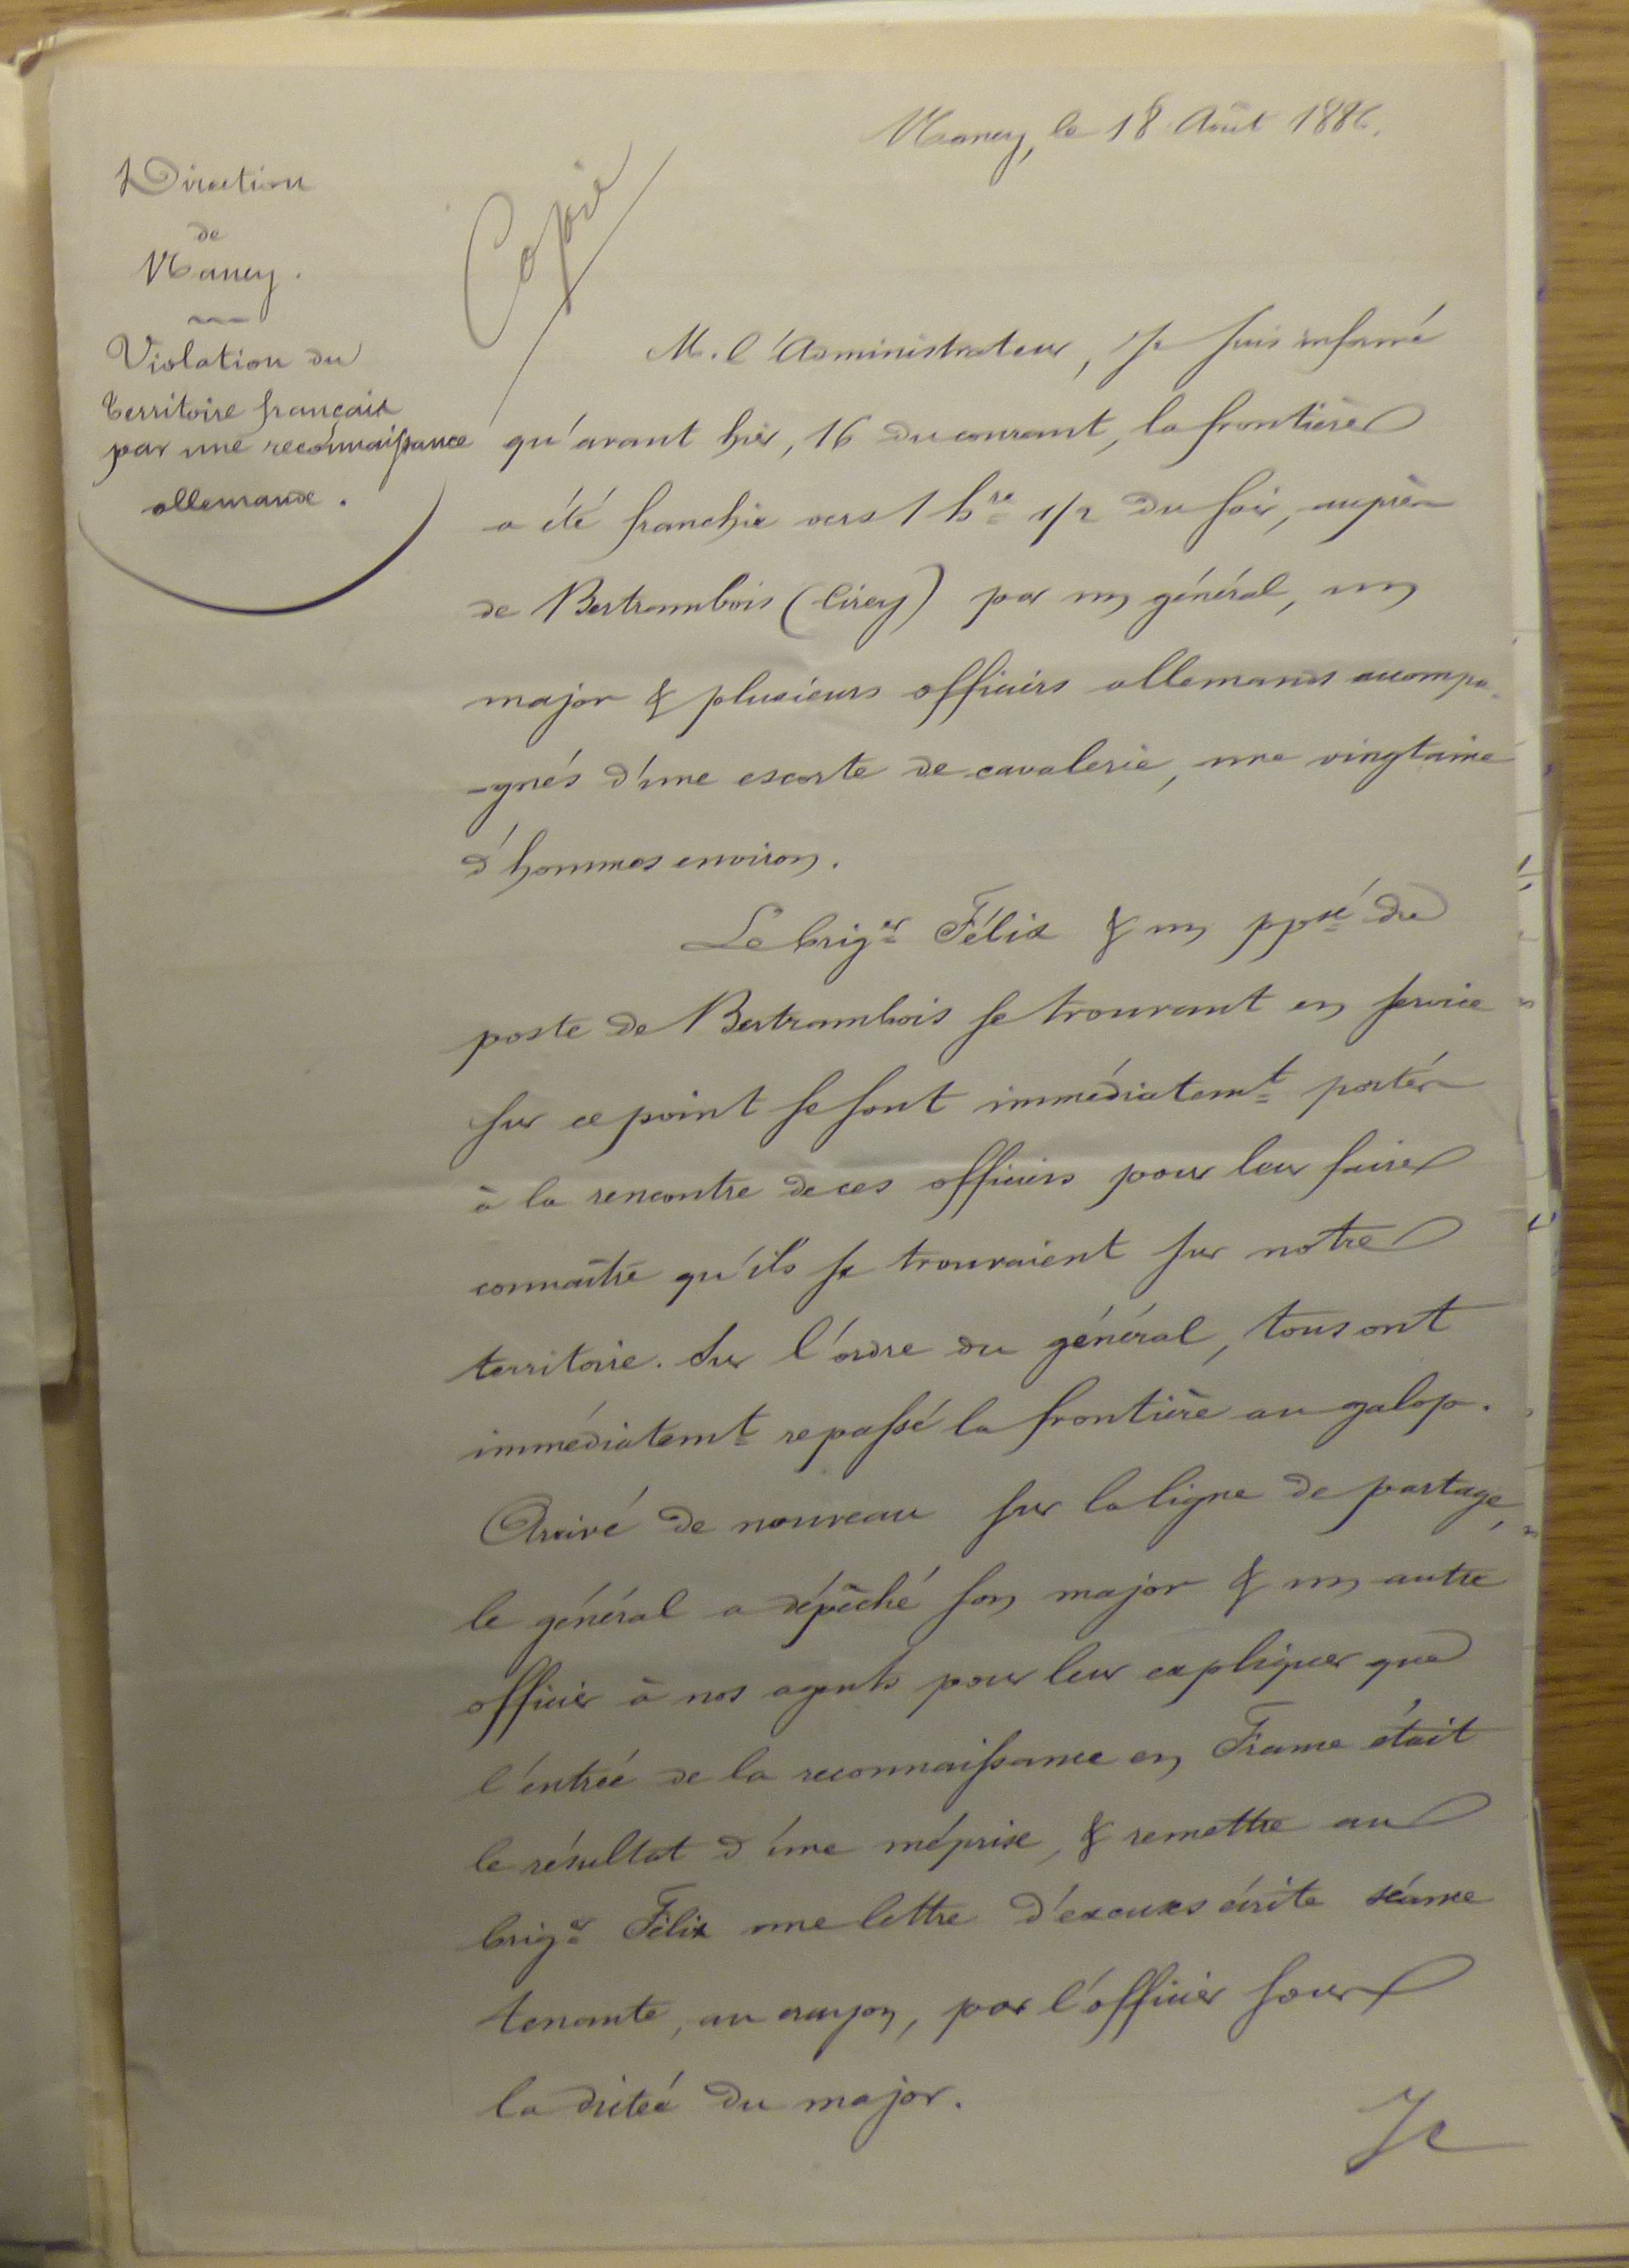 Nancy, le 18 Août 1886.
Direction
de
Nancy.
Copie
Violation du
territoire français
par une reconnaissance
allemande.
M. l'Administrateur, Je suis informé
qu'avant hier, 16 du courant, la frontière
a été franchie vers 1 hre 1/2 du soir, auprès
de Bertrambois (Cirey) par un général, un
major & plusieurs officiers allemands accompa-
-gnés d'une escorte de cavalerie, une vingtaine
d'hommes environ.
Le briger Félix & un pposé du
poste de Bertrambois se trouvant en service
sur ce point se sont immédiatemt portés
à la rencontre de ces officiers pour leur faire
connaître qu'ils se trouvaient sur notre
territoire. Sur l'ordre du général, tous ont
immédiatemt repassé la frontière au galop.
Arrivé de nouveau sur la ligne de partage,
le général a dépêché son major & un autre
officier à nos agents pour leur expliquer que
l'entrée de la reconnaissance en France était
le résultat d'une méprise, & remettre au
briger Félix une lettre d'excuses écrite séance
tenante, au crayon, par l'officier sous
la dictée du major.
Je